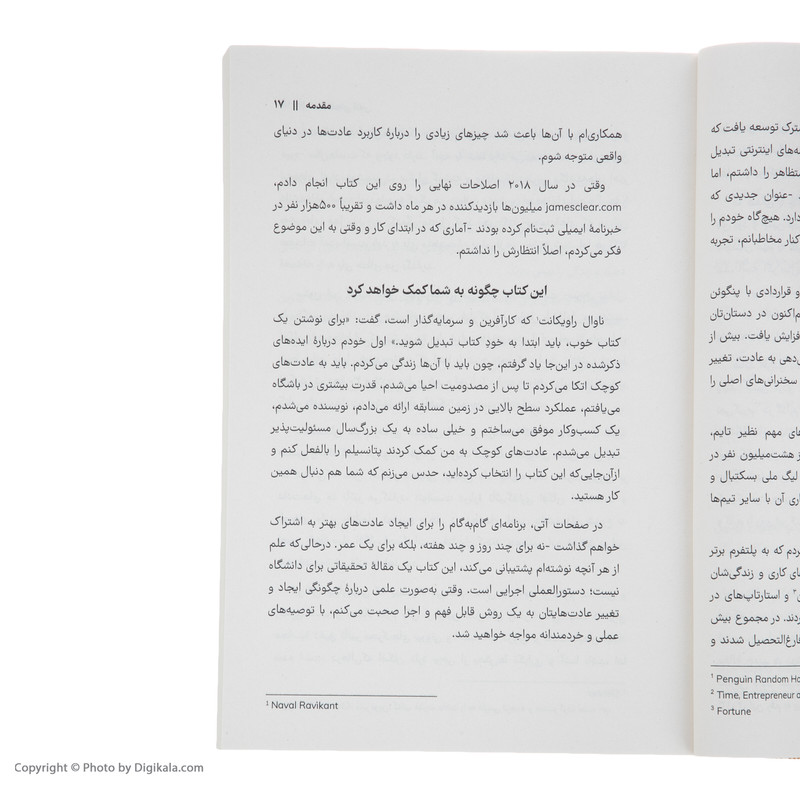 مقدمه || ۱۷
همکاری‌ام با آن‌ها باعث شد چیزهای زیادی را دربارهٔ کاربرد عادت‌ها در دنیای
واقعی متوجه شوم.
وقتی در سال ۲۰۱۸ اصلاحات نهایی را روی این کتاب انجام دادم،
jamesclear.com میلیون‌ها بازدیدکننده در هر ماه داشت و تقریباً ۵۰۰هزار نفر در
خبرنامهٔ ایمیلی ثبت‌نام کرده بودند -آماری که در ابتدای کار و وقتی به این موضوع
فکر می‌کردم، اصلاً انتظارش را نداشتم.
این کتاب چگونه به شما کمک خواهد کرد
ناوال راویکانت¹ که کارآفرین و سرمایه‌گذار است، گفت: «برای نوشتن یک
کتاب خوب، باید ابتدا به خودِ کتاب تبدیل شوید.» اول خودم دربارهٔ ایده‌های
ذکرشده در این‌جا یاد گرفتم، چون باید با آن‌ها زندگی می‌کردم. باید به عادت‌های
کوچک اتکا می‌کردم تا پس از مصدومیت احیا می‌شدم، قدرت بیشتری در باشگاه
می‌یافتم، عملکرد سطح بالایی در زمین مسابقه ارائه می‌دادم، نویسنده می‌شدم،
یک کسب‌وکار موفق می‌ساختم و خیلی ساده به یک بزرگ‌سال مسئولیت‌پذیر
تبدیل می‌شدم. عادت‌های کوچک به من کمک کردند پتانسیلم را بالفعل کنم و
ازآن‌جایی‌که این کتاب را انتخاب کرده‌اید، حدس می‌زنم که شما هم دنبال همین
کار هستید.
در صفحات آتی، برنامه‌ای گام‌به‌گام را برای ایجاد عادت‌های بهتر به اشتراک
خواهم گذاشت -نه برای چند روز و چند هفته، بلکه برای یک عمر. درحالی‌که علم
از هر آنچه نوشته‌ام پشتیبانی می‌کند، این کتاب یک مقالهٔ تحقیقاتی برای دانشگاه
نیست؛ دستورالعملی اجرایی است. وقتی به‌صورت علمی دربارهٔ چگونگی ایجاد و
تغییر عادت‌هایتان به یک روش قابل فهم و اجرا صحبت می‌کنم، با توصیه‌های
عملی و خردمندانه مواجه خواهید شد.
¹ Naval Ravikant
توسعه یافت که
اینترنتی تبدیل
را داشتم، اما
-عنوان جدیدی که
هیچ‌گاه خودم را
کنار مخاطبانم، تجربه
و قراردادی با پنگوئن
در دستان‌تان
یافت. بیش از
به عادت، تغییر
سخنرانی‌های اصلی را
مهم نظیر تایم،
هشت‌میلیون نفر در
لیگ ملی بسکتبال و
آن با سایر تیم‌ها
که به پلتفرم برتر
کاری و زندگی‌شان
و استارتاپ‌های در
در مجموع بیش
فارغ‌التحصیل شدند و
¹ Penguin Random
² Time, Entrepreneur
³ Fortune
Copyright © Photo by Digikala.com